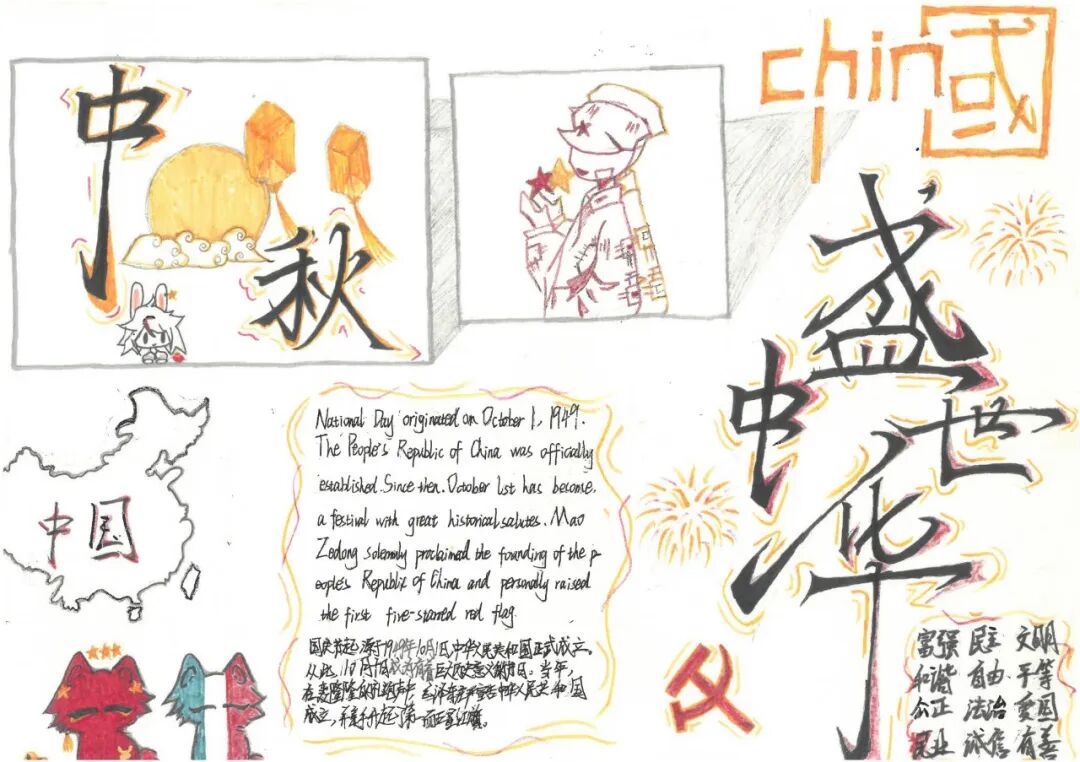 中秋
chin國
盛世
中华
中国
National Day originated on October 1, 1949.
The People's Republic of China was officially
established. Since then, October 1st has become
a festival with great historical salutes. Mao
Zedong solemnly proclaimed the founding of the p-
eople's Republic of China and personally raised
the first five-starred red flag.
国庆节起源于1949年10月1日,中华人民共和国正式成立。
从此,10月1日成为有着巨大历史意义的节日。当年,
在轰隆隆的礼炮声中,毛泽东严肃宣告中华人民共和国
成立,并亲手升起了第一面五星红旗。
富强 民主 文明
和谐 自由 平等
正 法治 爱国
业 诚信 有善